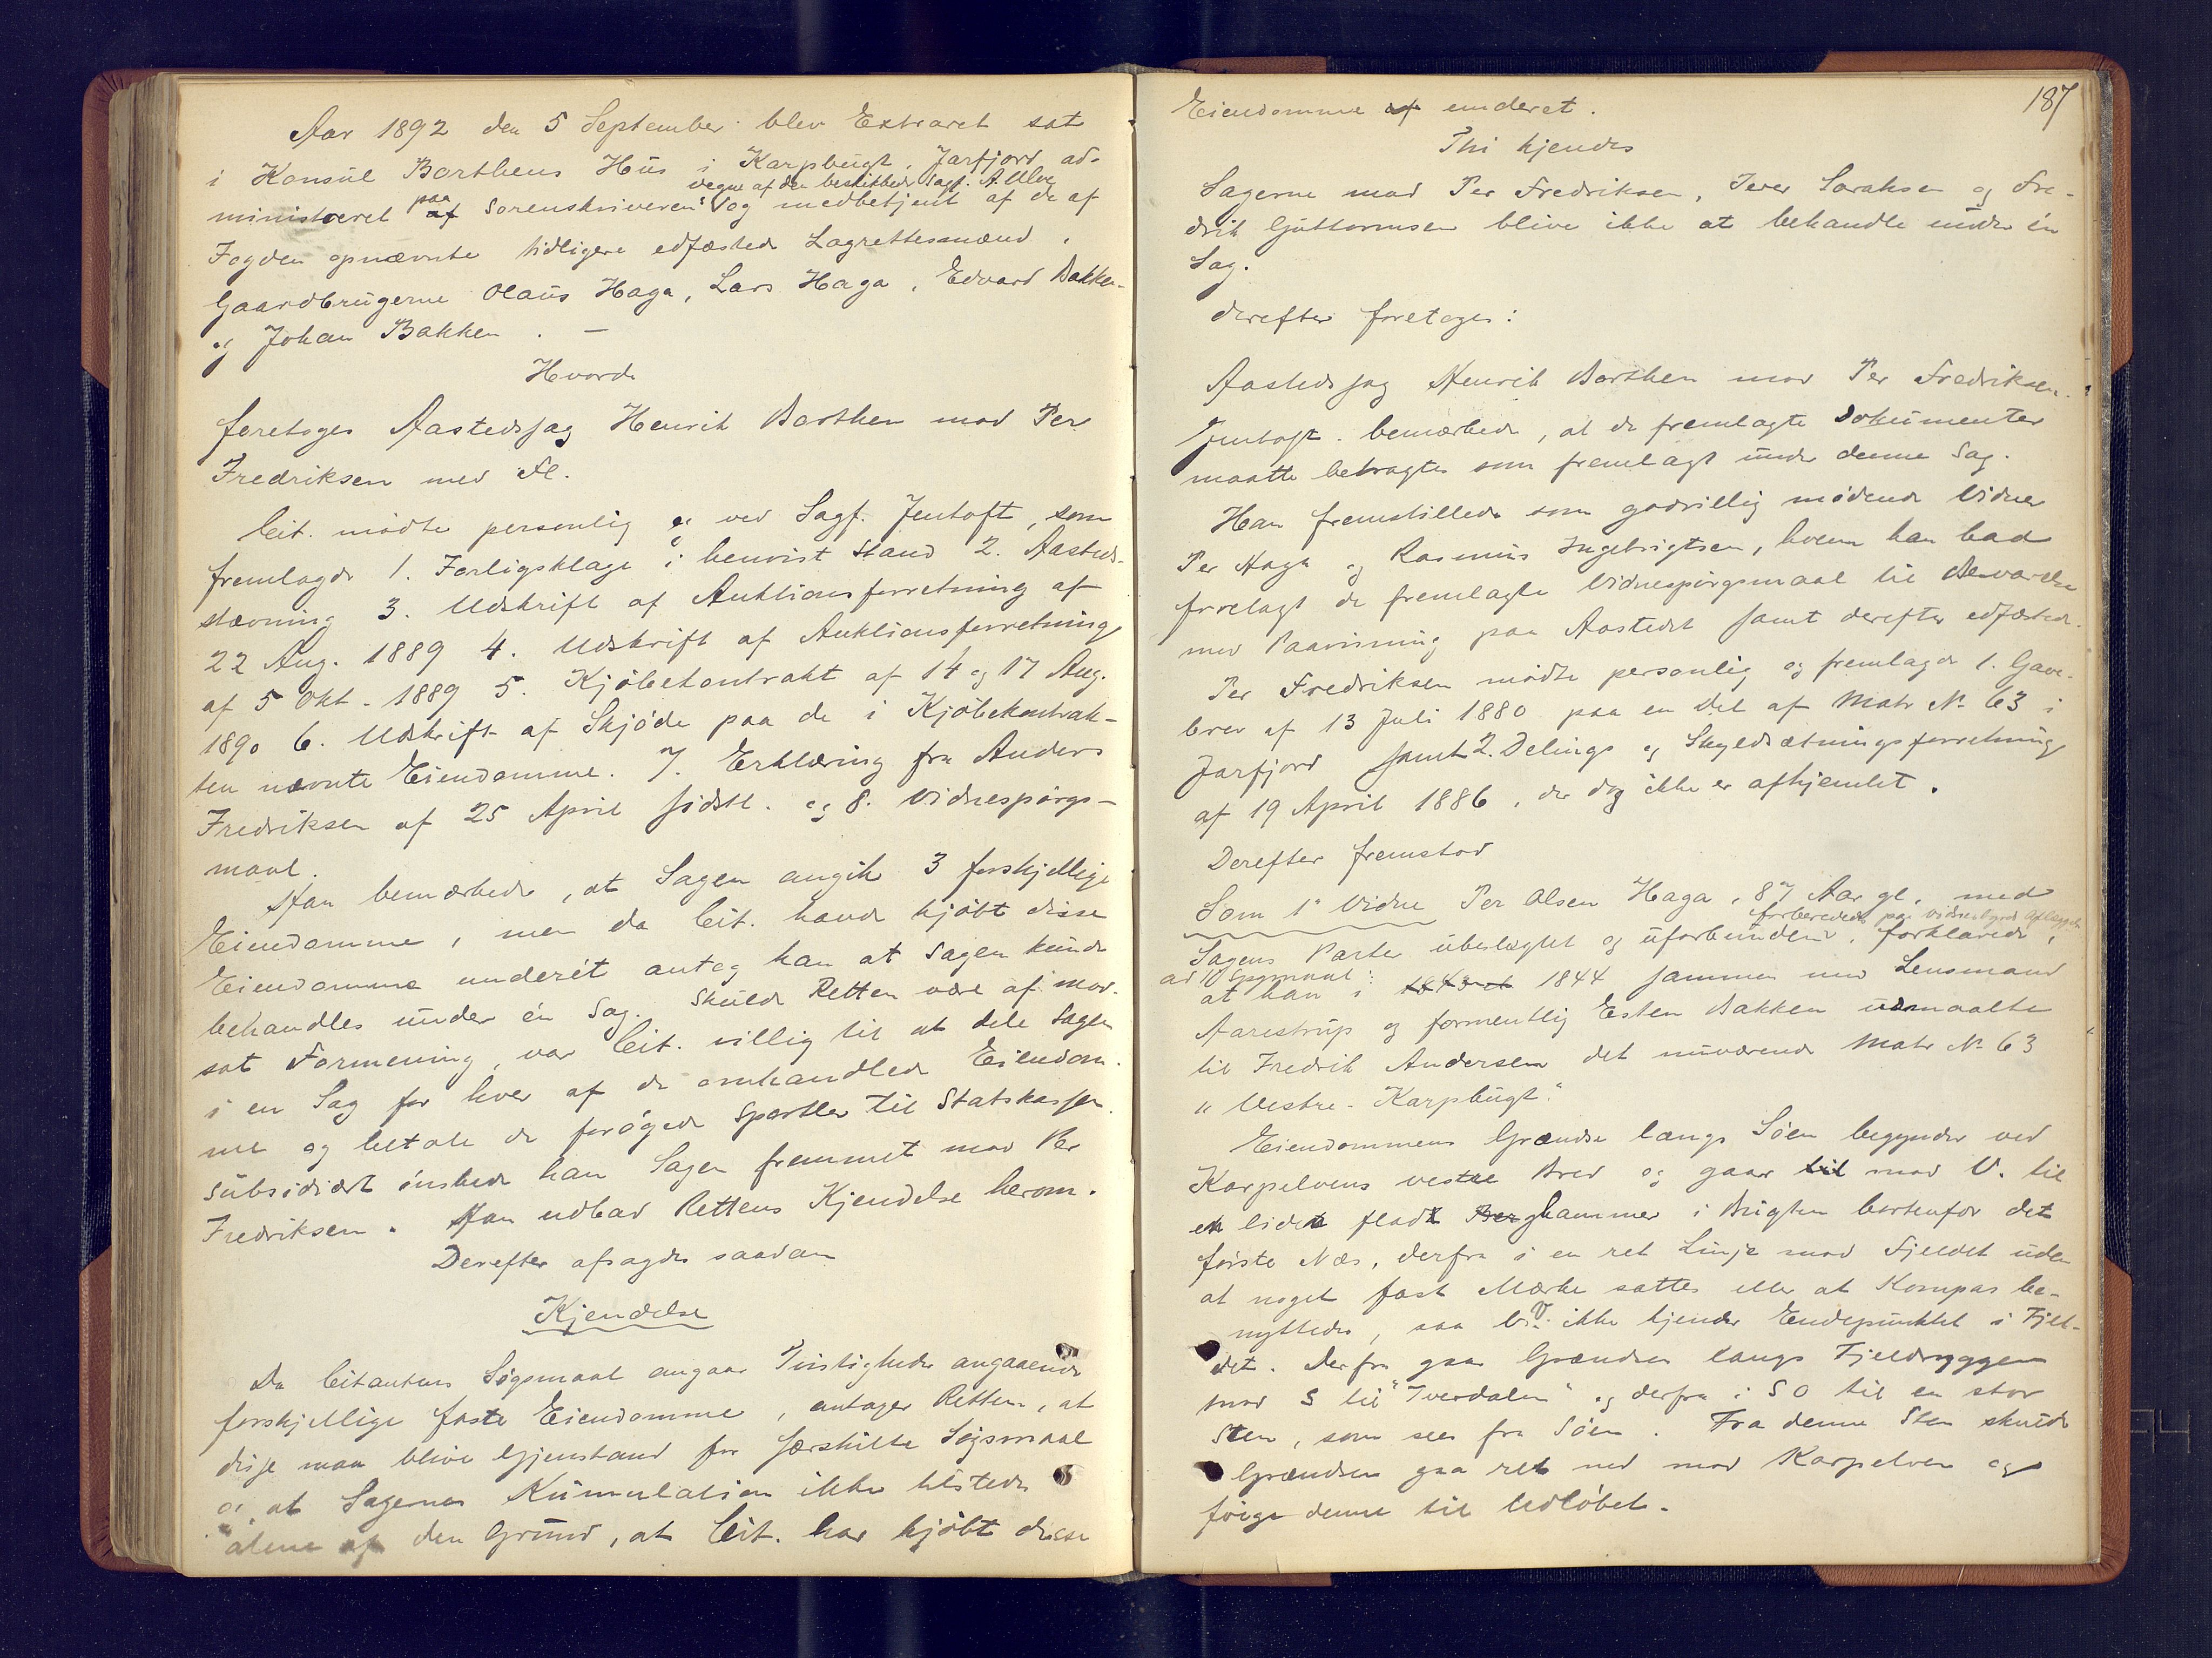 Aar 1892 den 5 September blev Extraret sat
i Konsul Barthens Hus i Karpbugt, Jarfjord ad-
ministreret paa Sorenskriverens vegne af den beskikkede Sagf. A. Ulve og medbetjent af de af
Fogden opnævnte tidligere edfæstede Lagrettesmænd,
Gaardbrugerne Olaus Haga, Lars Haga, Edvard Bakken
og Johan Bakken. —
Hvorda
foretoges Aastedssag Henrik Barthen mod Per
Fredriksen med Fl.
Cit. mødte personlig og ved Sagf. Jentoft, som
fremlagde 1. Forligsklage i henvist Stand 2. Aasteds-
stævning 3. Udskrift af Auktionsforretning af
22 Aug. 1889 4. Udskrift af Auktionsforretning
af 5 Okt. 1889 5. Kjøbekontrakt af 14 og 17 Aug.
1890 6. Udskrift af Skjøde paa de i Kjøbekontrak-
ten nævnte Eiendomme. 7. Erklæring fra Anders
Fredriksen af 25 April sidstl. og 8. Vidnespørgs-
maal.
Han bemærkede, at Sagen angik 3 forskjellige
Eiendomme, men da Cit. havde kjøbt disse
Eiendomme underét antog han at Sagen kunde
behandles under én Sag. Skulde Retten være af mod-
sat Formening, var Cit. villig til at dele Sagen
i en Sag for hver af de omhandlede Eiendom-
me og betale de forøgede Sportler til Statskassen.
Subsidiært ønskede han Sagen fremmet mod Per
Fredriksen. Han udbad Rettens Kjendelse herom.
Derefter afsagdes saadan
Kjendelse
Da Citantens Søgsmaal angaar Tvistigheder angaaende
forskjellige faste Eiendomme, antager Retten, at
disse maa blive Gjenstand for særskilte Søgsmaal
og at Sagernes Kumulation ikke tilstedes
alene af den Grund, at Cit. har kjøbt disse
187
Eiendomme af underet.
Thi kjendes
Sagerne mod Per Fredriksen, Iver Saraksen og Fre-
drik Guttormsen blive ikke at behandle under én
Sag.
Derefter foretoges:
Aastedssag Henrik Barthen mod Per Fredriksen.
Jentoft bemærkede, at de fremlagte Dokumenter
maatte betragtes som fremlagt under denne Sag.
Han fremstillede som godvillig mødende Vidner
Per Haga og Rasmus Ingebrigtsen, hvem han bad
forelagt de fremlagte Vidnespørgsmaal til Besvarelse
med Paavisning paa Aastedet samt derefter edfæstede.
Per Fredriksen mødte personlig og fremlagde 1. Gave-
brev af 13 Juli 1880 paa en Del af Matr № 63 i
Jarfjord samt 2. Delings og Skyldsætningsforretning
af 19 April 1886, der dog ikke er afhjemlet.
Derefter fremstod
Som 1ste Vidne Per Olsen Haga, 87 Aar gl., med
Sagens Parter ubeslægtet og uforbunden, forberedet paa Vidnesbyrds Aflæggelse forklarede,
ad 1 Spgsmaal:
at han i 1844 sammen med Lensmand
Aarestrup og formentlig Esten Bakken udmaalte
til Fredrik Andersen det nuværende Matr № 63
„Vestre-Karpbugt".
Eiendommens Grændse langs Søen begynder ved
Karpelvens vestre Bred og gaar mod V. til
en liden flad hammer i Bugten bortenfor det
første Næs, derfra i en ret Linje mod Fjeldet uden
at noget fast Mærke sattes eller at Kompas be-
nyttedes, saa V. ikke kjender Endepunktet i Fjel-
det. Derfra gaar Grændsen langs Fjeldryggen
mod S til "Tverdalen" og derfra i SO til en stor
Sten, som sees fra Søen. Fra denne Sten skulde
Grændsen gaa ret ned mod Karpelven og
følge denne til Udløbet.